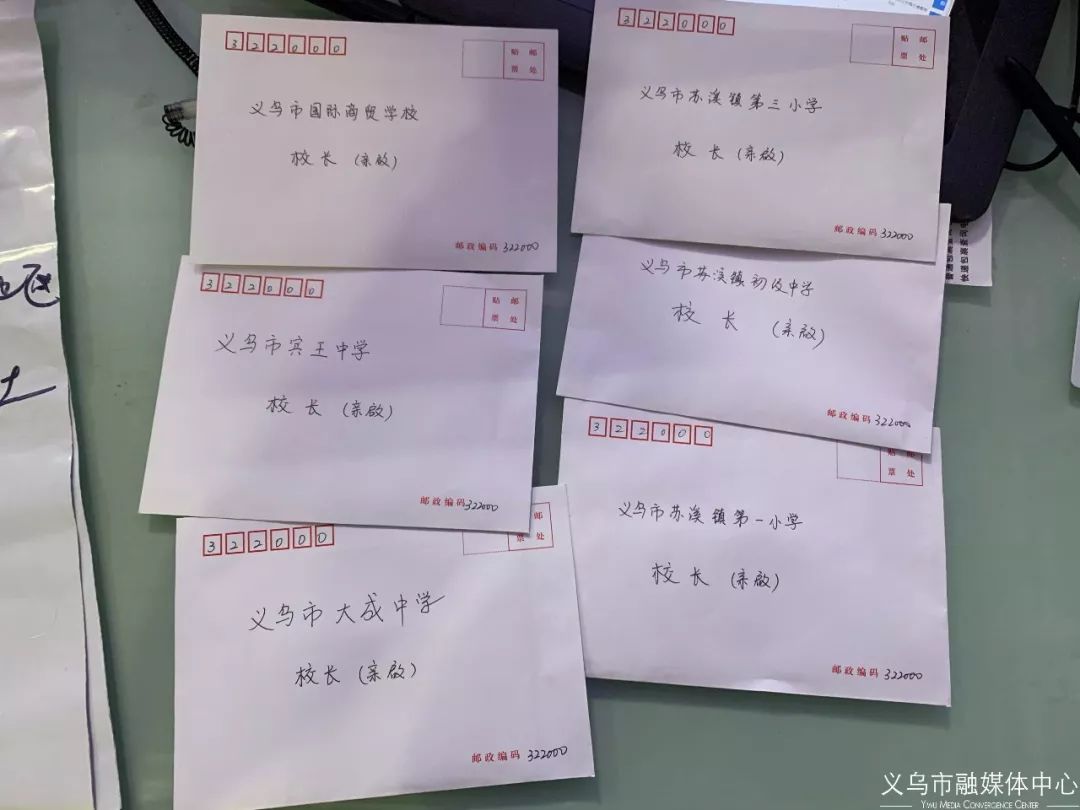 322000
贴 邮
票 处
义乌市国际商贸学校
校长(亲啟)
邮政编码 322000
322000
贴 邮
票 处
义乌市苏溪镇第三小学
校长(亲啟)
邮政编码 322000
322000
贴 邮
票 处
义乌市宾王中学
校长(亲啟)
邮政编码 322000
义乌市苏溪镇初级中学
校长(亲啟)
邮政编码 322000
322000
邮
票 处
义乌市大成中学
校长(亲啟)
邮政编码 322000
322000
贴 邮
票 处
义乌市苏溪镇第一小学
校长(亲啟)
邮政编码 322000
义乌市融媒体中心
YIWU MEDIA CONVERGENCE CENTER